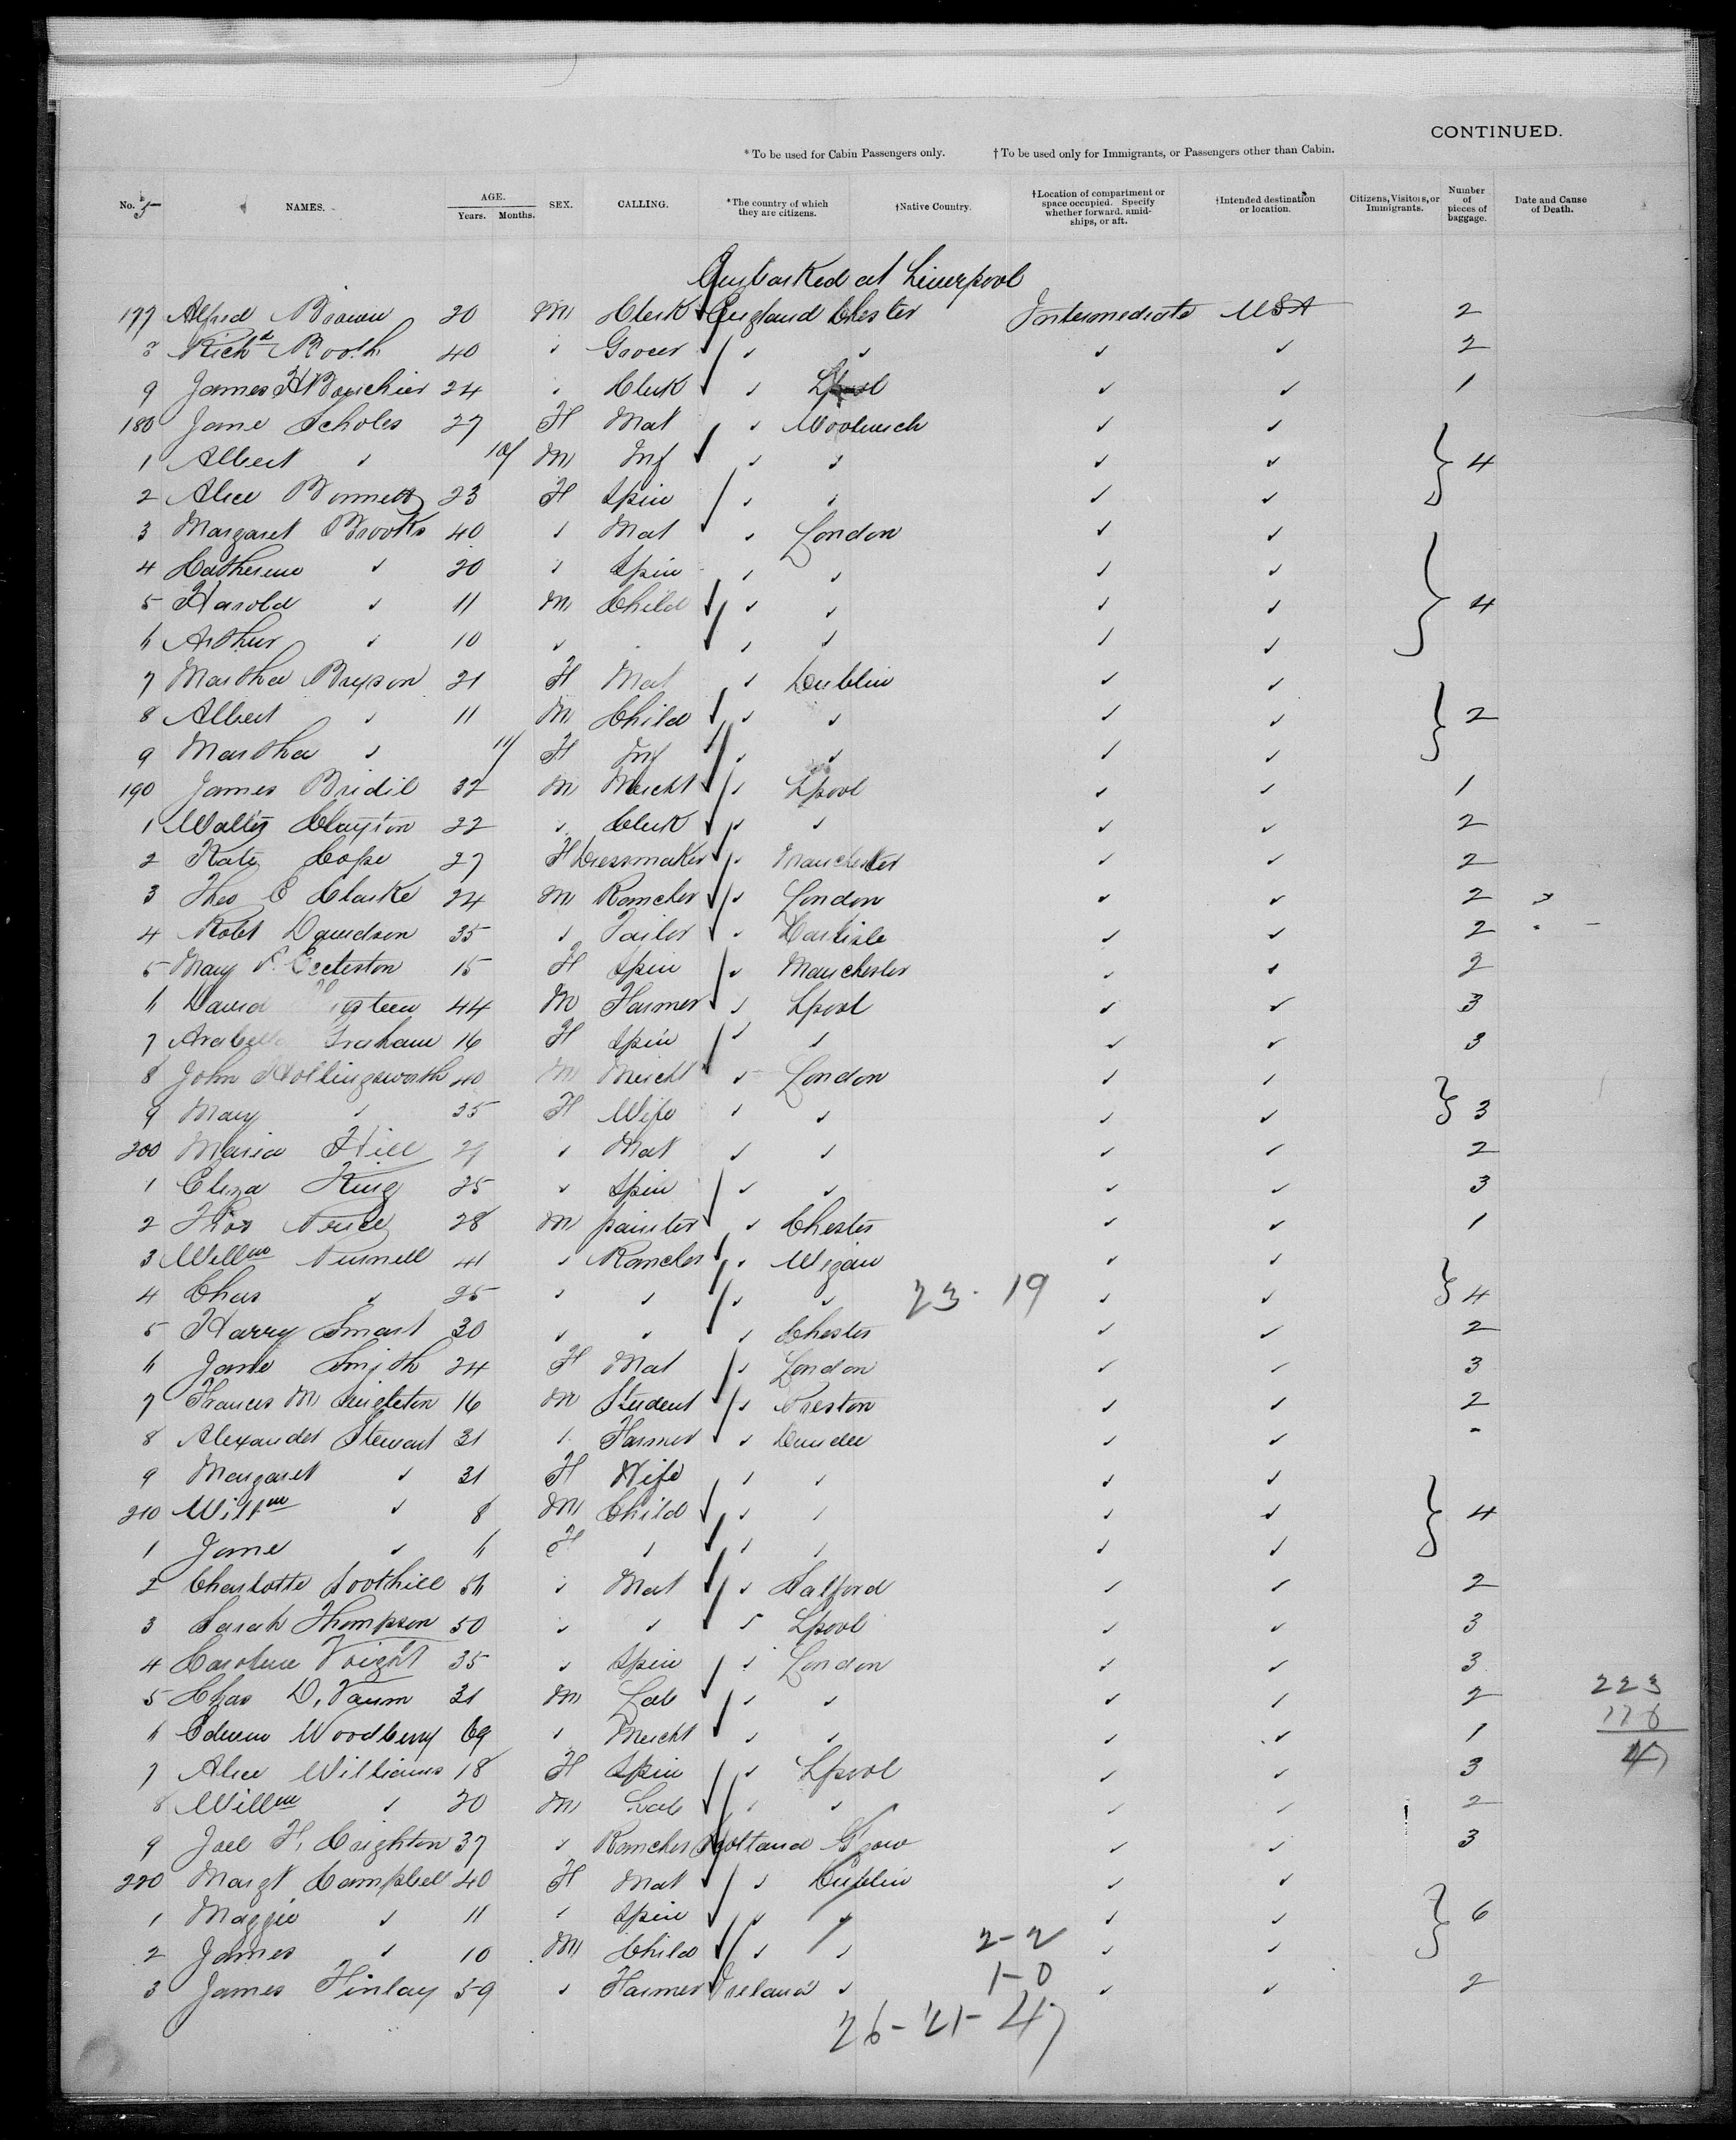 CONTINUED.
* To be used for Cabin Passengers only. † To be used only for Immigrants, or Passengers other than Cabin.
No. 5 NAMES. AGE. Years. Months. SEX. CALLING. *The country of which they are citizens. †Native Country. †Location of compartment or space occupied. Specify whether forward, amidships, or aft. †Intended destination or location. Citizens, Visitors, or Immigrants. Number of pieces of baggage. Date and Cause of Death.
Embarked at Liverpool
177 Alfred Brown 20 M Clerk England Chester Intermediate USA 2
8 Richd Booth 40 " Grocer " " " " 2
9 James H Bouchier 24 " Clerk " Lpool " " 1
180 Jane Scholes 27 F Mat " Woolwich " "
1 Albert " 10/ M Inf " " " " 4
2 Alice 23 F Spin " " " "
3 Margaret Brooks 40 " Mat " London " "
4 Catherine " 20 " Spin " " " "
5 Harold " 11 M Child " " " " 4
6 Arthur " 10 " " " " "
7 Martha Bryson 21 F Mat " Dublin " "
8 Albert " 11 M Child " " " " 2
9 Martha " 11/ F Inf " " " "
190 James Bridil 32 M Mercht " Lpool " " 1
1 Walter Clayton 22 " Clerk " " " " 2
2 Kate Cope 27 F Dressmaker " Manchester " " 2
3 Theo C Clarke 24 M Rancher " London " " 2
4 Robt Davidson 35 " Tailor " Carlisle " " 2
5 Mary Eccleston 15 F Spin " Manchester " " 2
6 David 44 M Farmer " Lpool " " 3
7 Arabella Graham 16 F Spin " " " " 3
8 John Hollingsworth 40 M Mercht " London " "
9 Mary " 35 F Wife " " " " 3
200 Maria Hill 29 " Mat " " " " 2
1 Eliza King 25 " Spin " " " " 3
2 Thos 28 M painter " Chester " " 1
3 Willm 41 " Rancher " Wigan " "
4 Chas " 25 " " " " 23 - 19 " " 4
5 Harry Smart 30 " " " Chester " " 2
6 Jane Smith 24 F Mat " London " " 3
7 Frances M Singleton 16 M Student " Preston " " 2
8 Alexander Stewart 31 " Farmer " Dundee " " "
9 Margaret " 31 F Wife " " " "
210 Willm " 8 M Child " " " " 4
1 Jane " 6 F " " " " "
2 Charlotte Toothill 56 " Mat " Salford " " 2
3 Sarah Thompson 50 " " " Lpool " " 3
4 Caroline Voight 35 " Spin " London " " 3
5 Chas D. Vaum 31 M Lab " " " " 2 223
6 Edwin Woodberry 69 " Mercht " " " " 1 176
7 Alice Williams 18 F Spin " Lpool " " 3 47
8 Willm " 20 M Lab " " " " 2
9 Joel H. Crighton 37 " Rancher Scotland Ggow " " 3
220 Margt Campbell 40 F Mat " Dublin " "
1 Maggie " 11 " Spin " " " " 6
2 James " 10 M Child " " 2-2 " "
3 James Finlay 59 " Farmer Ireland " 1-0 " " 2
26-21-47